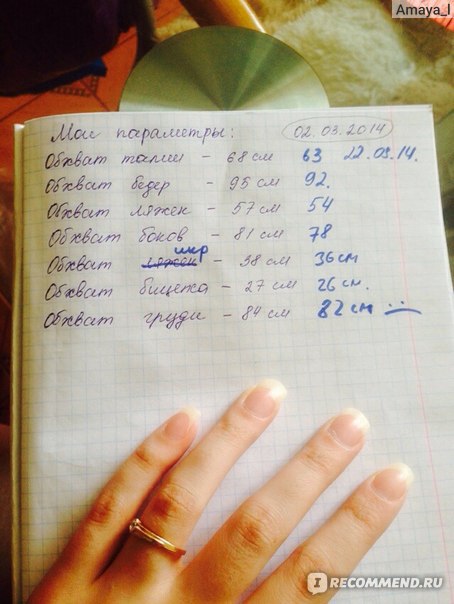 Amaya_I
Мои параметры: 02.03.2014
Обхват талии - 68 см 63 22.03.14.
Обхват бедер - 95 см 92.
Обхват ляжек - 57 см 54
Обхват боков - 81 см 78
икр
Обхват ляжек - 38 см 36 см
Обхват бицепса - 27 см 26 см.
Обхват груди - 84 см 82 см
I RECOMMEND.RU